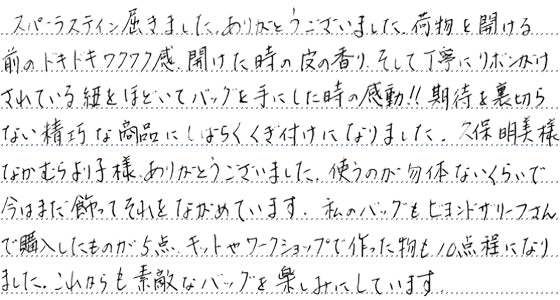 スパーラスティン届きました。ありがとうございました。荷物を開ける
前のドキドキワクワク感、開けた時の皮の香り、そして丁寧にリボンがけ
されている紐をほどいてバッグを手にした時の感動!!期待を裏切ら
ない精巧な商品にしばらくくぎ付けになりました。久保明美様
なかむらより子様、ありがとうございました。使うのが勿体ないくらいで
今はまだ飾ってそれをながめています。私のバッグもビヨンドザリーフさん
で購入したものが5点、キットやワークショップで作った物も10点程になり
ました。これからも素敵なバッグを楽しみにしています。